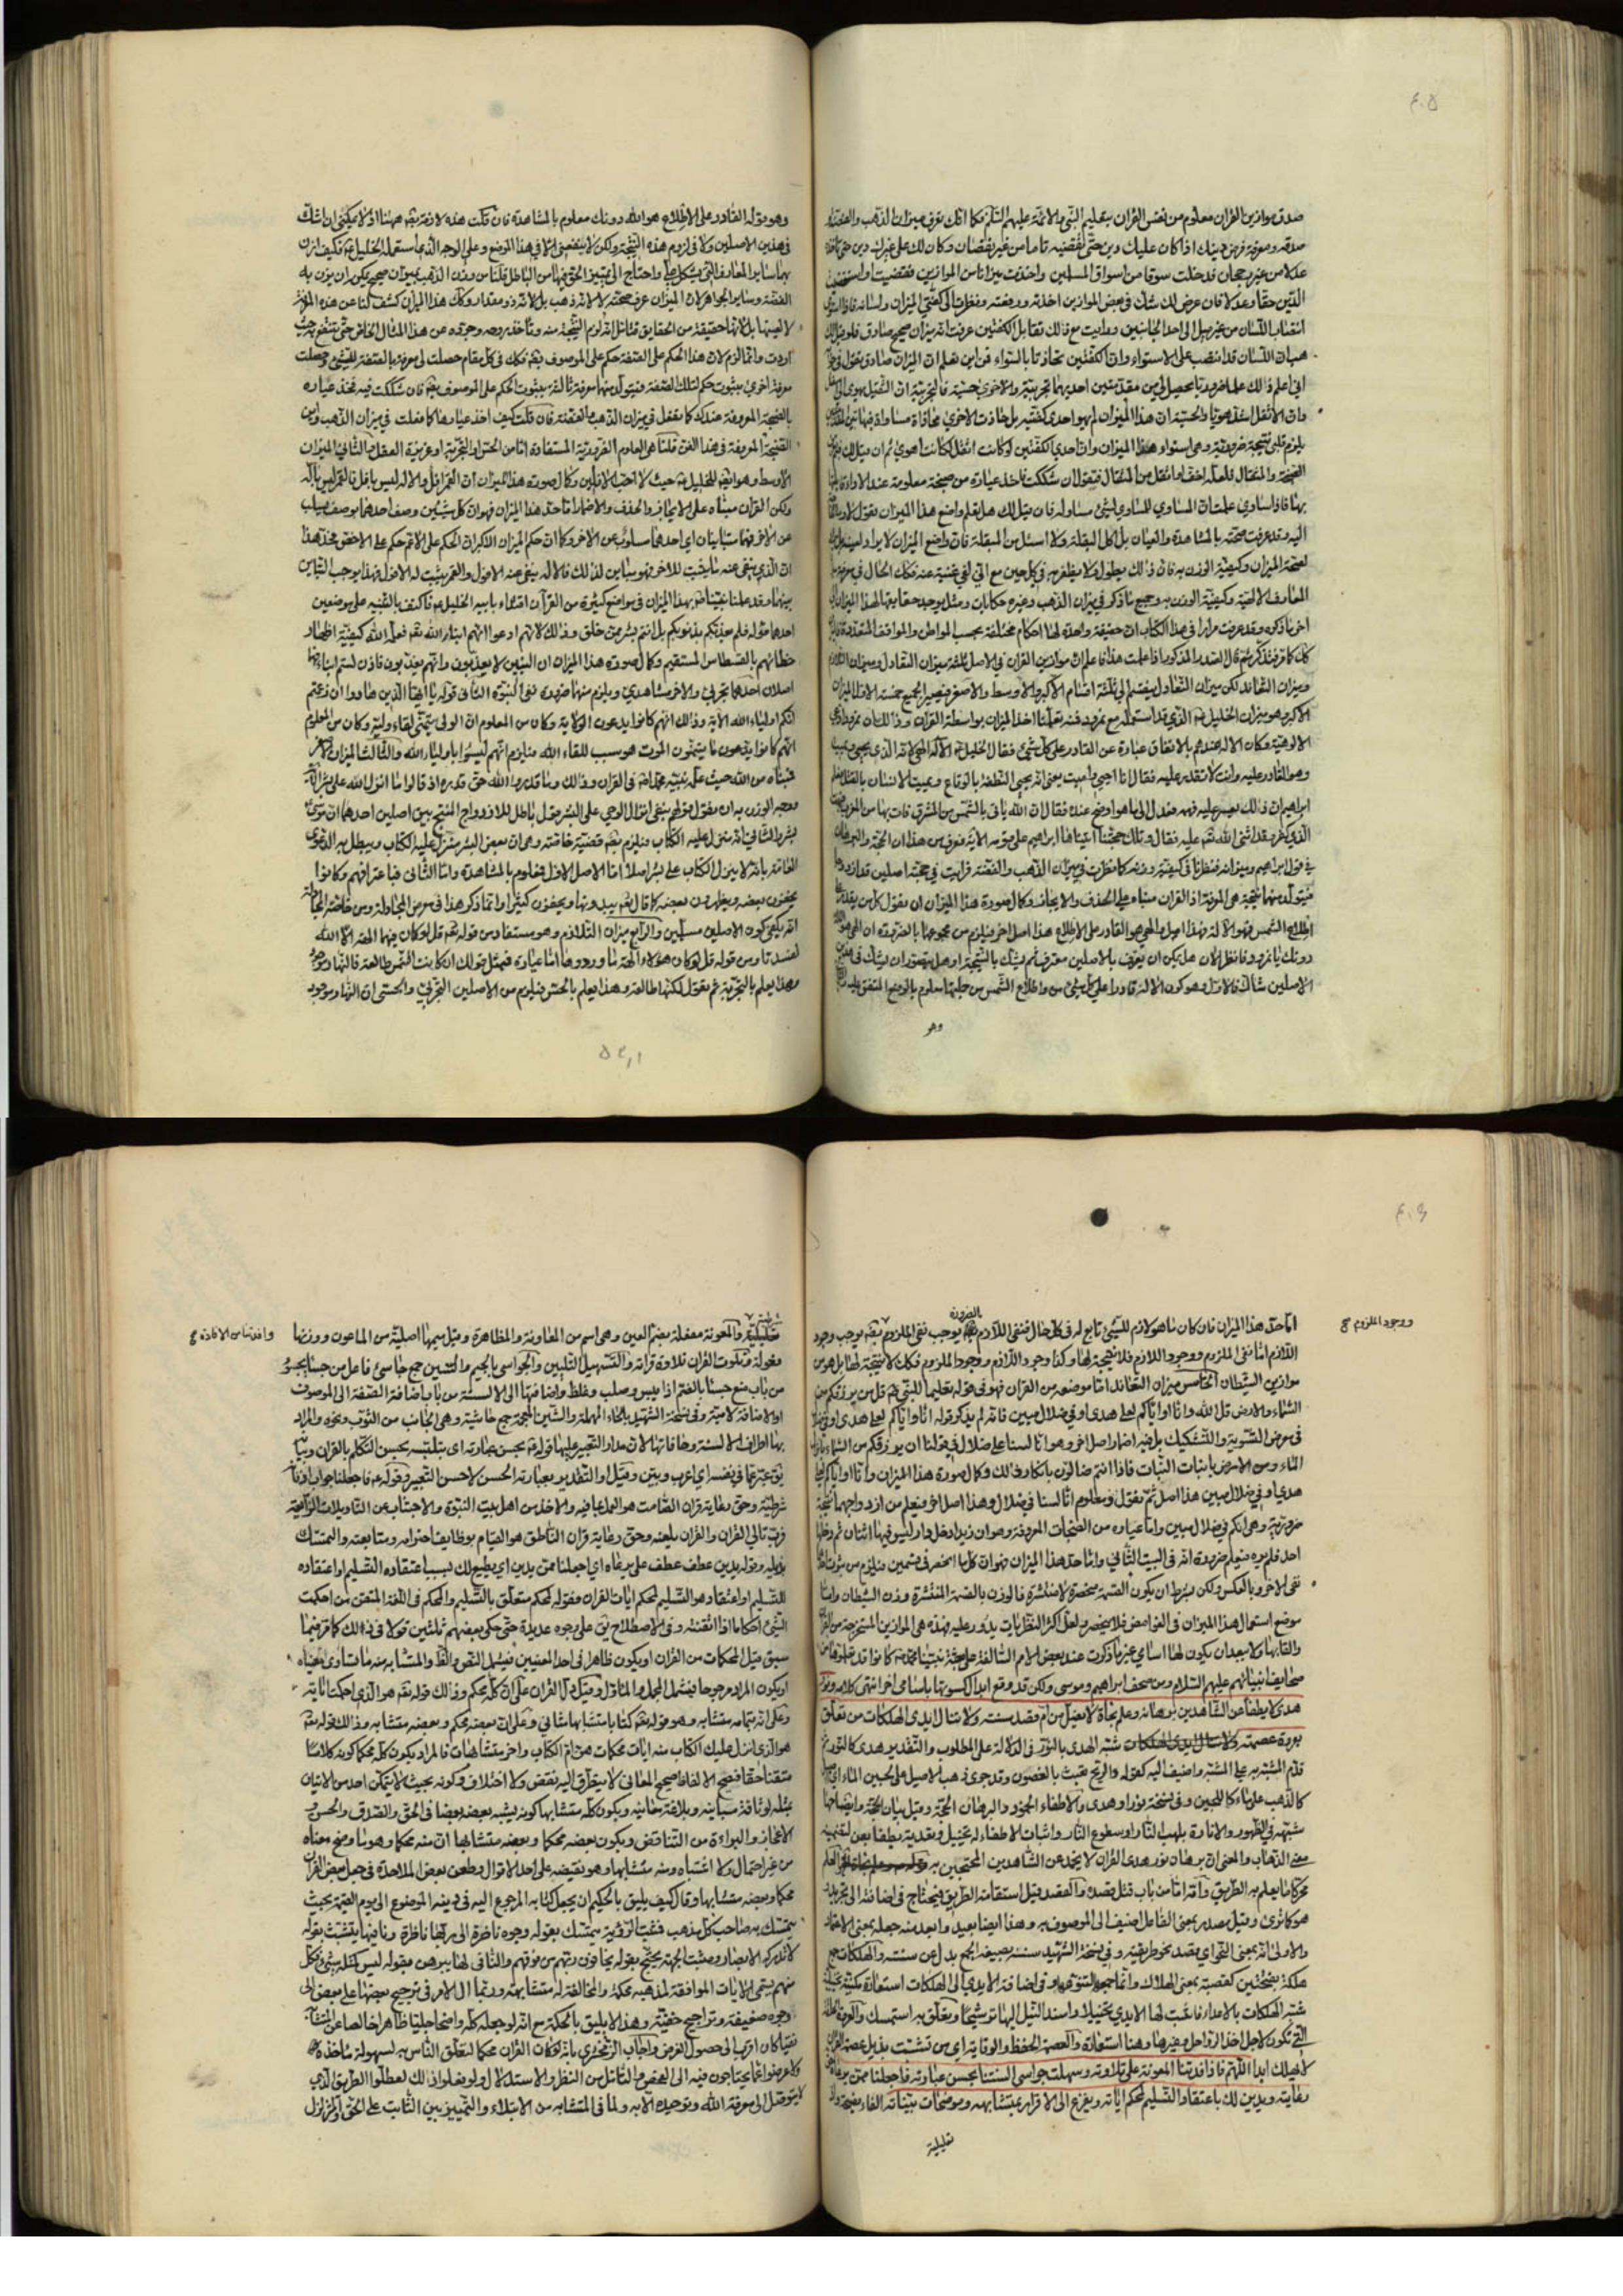 صدق موازين القران معلوم من نفس القران بتعليم النبي والائمة عليهم السلم فكما انك تعرف ميزان الذهب والفضة و
صدقه ومعرفة فرض دينك اذا كان عليك دين حتى تقضيه تاما من غير نقصان وكان لك على غيرك دين حتى
عدلا من غير رجحان قد خلت سوقا من اسواق المسلمين واخذت ميزانا من الموازين فقضيت واستقضيت
الدين حقا وعدلا فان عرض لك شك في بعض الموازين اخذته ورفعته ونظرت الى كفتي الميزان ولسانه فاذا استوى
انتصاب اللسان من غير ميل الى احد الجانبين ورايت مع ذلك تقابل الكفتين عرفت انه ميزان صحيح صادق فلو قيل لك
هب ان اللسان قد انتصب على الاستواء وان الكفتين تحاذتا بالسواء فمن اين تعلم ان الميزان صادق تقول
اني اعلم ذلك علما ضروريا يحصل لي من مقدمتين احديهما تجربية والاخرى حسية فالتجربية ان الثقيل يهوى الى
وان الاثقل اشد هويا والحسية ان هذا الميزان لم يهو احدى كفتيه بل حاذت الاخرى محاذاة مساواة
يلزم قلبي نتيجة ضرورية وهي استواء هذا الميزان وان احدى الكفتين لو كانت اثقل لكانت اهوى ثم ان قيل لك
الصنجة والمثقال فلعله اخف او اثقل من المثقال فتقول ان شككت فاخذ عياره من صنجة معلومة عند
بها فاذا ساوى علمت ان المساوي للمساوي لشئ مساو له فان قيل لك هل تعلم واضع هذا الميزان تقول لا
اليه وقد عرفت صحته بالمشاهدة والعيان بل اكل البقلة ولا اسئل من المبقلة فان واضع الميزان لا يراد لعينه بل
لصحة الميزان وكيفية الوزن به فان ذلك يطول ولا يظفر به في كل حين مع اني لفي غنية عنه فكذلك الحال في معرفة
المعارف الالهية وكيفية الوزن به وجميع ما ذكر في ميزان الذهب وغيره حكايات ومثل يوجد حقايقها لهذا الميزان
اخر ما ذكره وقد عرفت مرارا في هذا الكتاب ان حقيقة واحدة لها احكام مختلفة بحسب المواطن والمواقف المتقدمة
كل كما مر فتذكر ثم قال الصدر المذكور اذا علمت هذا فاعلم ان موازين القران في الاصل ثلثة ميزان التعادل وميزان التلازم
وميزان التعاند لكن ميزان التعادل ينقسم الى ثلثة اقسام الاكبر والاوسط والاصغر فيصير الجميع خمسة الاول الميزان
الاكبر وهو ميزان الخليل ع الذي قد استعمله مع نمرود فمنه تعلمنا اخذ الميزان بواسطة القران وذلك ان نمرود ادعى
الالوهية وكان الاله عندهم بالاتفاق عبارة عن القادر على كل شئ فقال الخليل ع الاله الهي لانه الذي يحيي ويميت
وهو القادر عليه وانت لا تقدر عليه فقال انا احيي واميت يعني انه يحيي النطفة بالوقاع ويميت الانسان بالقتل فعلم
ابراهيم ان ذلك يعسر عليه فهمه فعدل الى ما هو اوضح عنده فقال ان الله ياتي بالشمس من المشرق فات بها من المغرب
الذي كفر وقد اثنى الله تعالى عليه فقال وتلك حجتنا اتيناها ابراهيم على قومه الاية فعرف من هذا ان الحجة والبرهان
في قول ابراهيم وميزانه فنظرنا في كيفية وزنه كما نظرت في ميزان الذهب والفضة فرايت في حجته اصلين قد ازدوجا
فتولد منهما نتيجة هي المعرفة اذ القران مبناه على الحذف والايجاز وكمال صورة هذا الميزان ان تقول كل من يقدر
اطلاع الشمس فهو الاله فهذا اصل والهي هو القادر على الاطلاع هذا اصل اخر فيلزم من مجموعهما بالضرورة ان الهي هو
دونك يا نمرود فانظر الان هل يمكن ان يعترف بالاصلين معترف ثم يشك بالنتيجة او هل يتصور ان يشك في
الاصلين شاك فالاول وهو كون الاله قادرا على كل شئ من واطلاع الشمس من جملتها معلوم بالوضع المتفق عليه
وهو
وهو قوله القادر على الاطلاع هو الله دونك معلوم بالمشاهدة فان قلت هذه لازمة بقه ههنا اذ لا يمكنني ان اشك
في هذين الاصلين ولا في لزوم هذه النتيجة ولكن لا ينفعني الا في هذا الموضع وعلى الوجه الذي استعمله الخليل ع فكيف ازن
بها ساير المعارف التي يشكل علي واحتاج الى تمييز الحق فيها من الباطل قلنا من وزن الذهب بميزان صحيح يمكن ان يزن به
الفضة وساير الجواهر لان الميزان عرف صحته لا لانه ذهب بل لانه ذو مقدار وكذلك هذا الميزان كشف لنا عن هذه المعرفة
لا لعينها بل لانها حقيقة من الحقايق فنتامل انه لم لزم النتيجة منه وناخذ روحه ونجرده عن هذا المثال الخاص حتى ننتفع حيث
اردت وانما لزم لان هذا الحكم على الصفة حكم على الموصوف بقه فكك في كل مقام حصلت لي معرفة بالصفة للشئ وحصلت
معرفة اخرى بثبوت حكم لتلك الصفة فيتولد منهما معرفة ثالثة بثبوت الحكم على الموصوف بقه فان شككت فيه فخذ عياره
بالصنجة المعروفة عندك كما تفعل في ميزان الذهب والفضة فان قلت كيف اخذ عيارها كما فعلت في ميزان الذهب واين
الصنجة المعروفة في هذا الفن قلنا هي العلوم الضرورية المستفادة اما من الحس او التجربة او غريزة العقل والثاني الميزان
الاوسط وهو ايضا للخليل ع حيث لا احب الافلين وكمال صورة هذا الميزان ان القمر افل والاله ليس بافل فالقمر ليس باله
ولكن القران مبناه على الايجاز والحذف والاضمار اما حد هذا الميزان فهو ان كل شيئين وصف احدهما بوصف يسلب
عن الاخر فهما متباينان اي احدهما مسلوب عن الاخر وكما ان حكم الميزان الاكبر ان الحكم على الاعم حكم على الاخص فحد هذا
ان الذي ينفى عنه ما يثبت للاخر فهو مباين لذلك فالاله ينفى عنه الافول والقمر يثبت له الافول فهذا يوجب التباين
بينهما وقد علمنا نبينا ص بهذا الميزان في مواضع كثيرة من القرآن اقتداء بابيه الخليل ع فاكتف بالتنبيه على موضعين
احدهما قوله فلم يعذبكم بذنوبكم بل انتم بشر ممن خلق وذلك لانهم ادعوا انهم ابناء الله تعالى فعلمه الله كيفية اظهار
خطائهم بالقسطاس المستقيم وكمال صورة هذا الميزان ان البنين لا يعذبون وانتم يعذبون فاذن لستم ابناء
اصلان احدهما تجربي والاخر مشاهدي ويلزم منهما ضرورة نفي البنوة الثاني قوله يا ايها الذين هادوا ان زعمتم
انكم اولياء الله الاية وذلك انهم كانوا يدعون الولاية وكان من المعلوم ان الولي يتمنى لقاء وليه وكان من المعلوم
انهم كانوا يكرهون ما يتمنون الموت هو سبب للقاء الله فيلزم انهم ليسوا باولياء الله والثالث الميزان الاصغر
فتبناه من الله حيث علمه نبيه محمد ص في القران وذلك وما قدروا الله حق قدره اذ قالوا ما انزل الله على بشر
ووجه الوزن به ان يقول قولهم بنفي انزال الوحي على البشر قول باطل للازدواج المنتج بين اصلين احدهما ان موسى
بشر والثاني انه منزل عليه الكتاب فيلزم بقه قضية خاصة وهي ان بعض البشر منزل عليه الكتاب ويبطل به الدعوى
العامة بانه لا ينزل الكتاب على بشر اصلا اما الاصل الاول فمعلوم بالمشاهدة واما الثاني فباعترافهم وكانوا
يخفون بعضه ويظهرون بعضه كما قال تعالى تبدونها وتخفون كثيرا وانما ذكر هذا في معرض المجادلة ومن خاصة المجادلة
انه يكفي كون الاصلين مسلمين والرابع ميزان التلازم وهو مستفاد من قوله تعالى قل لو كان فيهما الهة الا الله
لفسدتا ومن قوله قل لو كان هؤلاء الهة ما وردوها اما عياره فبمثل قولك ان كانت الشمس طالعة فالنهار موجود
وهذا يعلم بالتجربة ثم نقول لكنها طالعة وهذا يعلم بالحس فيلزم من الاصلين التجربي والحسي ان النهار موجود
اما حد هذا الميزان فان كان ما هو لازم للشئ تابع له في كل حال فنفي اللازم بالضرورة يوجب نفي الملزوم بقه يوجب وجود
ووجود الملزوم
اللازم اما نفي الملزوم ووجود اللازم فلا نتيجة لها وكذا وجود اللازم ووجود الملزوم فكك لا نتيجة لها بل هو من
موازين الشيطان الخامس ميزان التعاند اما موضعه من القران فهو في قوله تعليما للنبي ع قل من يرزقكم من
السماء والارض قل الله وانا او اياكم لعلى هدى او في ضلال مبين فانه لم يذكر قوله انا واياكم لعلى هدى او في ضلال
في معرض التسوية والتشكيك بل فيه اضمار اصل اخر وهو انا لسنا على ضلال في قولنا ان يرزقكم من السماء بانزال
الماء ومن الارض بانبات النبات فاذا انتم ضالون بانكار ذلك وكمال صورة هذا الميزان وانا او اياكم لعلى
هدى او في ضلال مبين هذا اصل ثم نقول ومعلوم انا لسنا في ضلال وهذا اصل اخر فيعلم من ازدواجهما نتيجة
ضرورية وهي انكم في ضلال مبين واما عياره من الصنجات المعروفة وهو ان زيدا دخل دارا ليس فيها اثنان ثم دخلها
احد فلم يره فيعلم ضرورة انه في البيت الثاني واما حد هذا الميزان فهو ان كل ما انحصر في قسمين فيلزم من ثبوت احدهما
نفي الاخر وبالعكس ولكن بشرط ان يكون القسمة منحصرة لا منتشرة فالوزن بالقسمة المنتشرة وزن الشيطان واما
موضع استعمال هذا الميزان في الغوامض فلا ينحصر ولعل اكثر النظريات يدور عليه فهذه هي الموازين المستخرجة من القران
والقابها ولا يبعد ان يكون لها اسامي غير ما ذكرت عند بعض الامم السالفة على بعثة نبينا محمد ص كانوا قد تعلموها من
صحايف انبيائهم عليهم السلام ومن صحف ابراهيم وموسى ولكن قد وقع ابدال كسوتها باسامي اخر انتهى كلامه ونور
هدى لا يطفأ عن الشاهدين برهانه وعلم نجاة لا يضل من ام قصد سنته ولا تنال ايدي الهلكات من تعلق
بعروة عصمته شبه الهدى بالنور في الدلالة على المطلوب والتقدير هدى كالنور ثم
قدم المشبه به على المشبه واضيف اليه كقوله والريح تعبث بالغصون وقد جرى ذهب الاصيل على لجين الماء اي اصيل
كالذهب على ماء كاللجين وفي نسخة نورا وهدى والاطفاء الخمود والبرهان الحجة وقيل بيان الحجة وايضاحها
شبهه في الظهور والانارة بلهب النار او سطوع النار واثبات الاطفاء له تخييل وتعدية يطفأ بعن لتضمينه
معنى الذهاب والمعنى ان برهان نور هدى القران لا يخمد عن الشاهدين المحتجين به والعلم
محركا ما يعلم به الطريق وامه اما من باب قتل قصده والقصد قيل استقامة الطريق فيحتاج في اضافته الى تجريد
هو كما ترى وقيل مصدر بمعنى الفاعل اضيف الى الموصوف به وهذا ايضا بعيد وابعد منه جعله بمعنى الاعتماد
والاولى انه بمعنى النحو اي يقصد نحو طريقته وفي نسخة الشهيد سننه بصيغة الجمع بدل عن سنته والهلكات جمع
هلكة بفتحتين كقصبة بمعنى الهلاك وفي اضافة الايدي الى الهلكات استعارة مكنية تخييلية
شبه الهلكات بالاعداء فاثبت لها الايدي تخييلا واسند النيل اليها ترشيحا وتعلق به استمسك والعروة
التي تكون لاجل اخذ الرواحل وغيرها وهنا استعارة والعصمة الحفظ والوقاية اي من تشبث بذيل عصمة القران
لا يهلك ابدا اللهم فاذا افدتنا المعونة على تلاوته وسهلت جواسي السنتنا بحسن عبارته فاجعلنا ممن يرعاه حق
رعايته ويدين لك باعتقاد التسليم لمحكم اياته ويفزع الى الاقرار بمتشابهه وموضحات بيناته الفاء فصيحة واذ
تعليلية
تعليلية والمعونة مفعلة بضم العين وهي اسم من المعاونة والمظاهرة وقيل ميمها اصلية من الماعون ووزنها
وافدتنا من الافادة
فعولة وتلوت القران تلاوة قراته والتسهيل التليين والجواسي بالجيم والسين جمع جاسي فاعل من جسا يجسو
من باب منع جسئا بالضم اذا يبس وصلب وغلظ واضافتها الى الالسنة من باب اضافة الصفة الى الموصوف
او الاضافة لامية وفي نسخة الشهيد بالحاء المهملة والشين المعجمة جمع حاشية وهي الجانب من الثوب ونحوه والمراد
بها اطراف الالسنة وحافاتها لان مدار التعبير عليها قوله ع بحسن عبارته اي بتلبسه بحسن التكلم بالقران وبيانه
يق عبر عما في نفسه اي اعرب وبين وقيل او التقدير بعبارته الحسن لاحسن التعبير وقوله ع فاجعلنا جواب اذ
شرطية وحق رعاية قران الصامت هو العمل بما فيه والاخذ من اهل بيت النبوة والاجتناب عن التاويلات الزائغة
فرب تالي القران والقران يلعنه وحق رعاية قران الناطق هو القيام بوظايف احترامه ومتابعته والتمسك
بذيله وقوله يدين عطف على يرعاه اي اجعلنا ممن يدين اي يطيع لك بسبب اعتقاده التسليم او اعتقاده
للتسليم او اعتقاد هو التسليم لمحكم ايات القران فقوله لمحكم متعلق بالتسليم والمحكم في اللغة المتقن من احكمت
الشئ احكاما اذا اتقنته وفي الاصطلاح يق على وجوه عديدة حتى حكى بعضهم ثلثين قولا في ذلك كما مر فيما
سبق قيل المحكمات من القران او يكون ظاهرا في احد المعنيين فيشمل النص والظاهر والمتشابه منه ما تساوى معنياه
او يكون المراد مرجوحا فيشمل المجمل والمأول وقيل دل القران على ان كله محكم وذلك قوله تعالى هو الذي احكمت اياته
وعلى انه بتمامه متشابه وهو قوله تعالى كتابا متشابها مثاني وعلى ان بعضه محكم وبعضه متشابه وذلك قوله تعالى
هو الذي انزل عليك الكتاب منه ايات محكمات هن ام الكتاب واخر متشابهات فالمراد بكون كله محكما كونه كلاما
متقنا حقا فصيح الالفاظ صحيح المعاني لا يتطرق اليه نقص ولا اختلاف وكونه بحيث لا يتمكن احد من الاتيان
بمثله لوثاقة مبانيه وبلاغة معانيه وبكون كله متشابها كونه يشبه بعضه بعضا في الحق والصدق والحسن و
الاعجاز والبراءة من التناقض وبكون بعضه محكما وبعضه متشابها ان منه محكما وهو ما وضح معناه
من غير احتمال ولا اشتباه ومنه متشابها وهو نقيضه على احد الاقوال وطعن بعض الملاحدة في جعل بعض القران
محكما وبعضه متشابها وقال كيف يليق بالحكيم ان يجعل كتابه المرجوع اليه في دينه الموضوع الى يوم القيمة بحيث
يتمسك به صاحب كل مذهب فمثبت الرؤية يتمسك بقوله وجوه ناظرة الى ربها ناظرة ونافيها يتشبث بقوله
لا تدركه الابصار ومثبت الجهة يحتج بقوله يخافون ربهم من فوقهم والنافي لها يبرهن بقوله ليس كمثله شئ فكل
منهم يسمي الايات الموافقة لمذهبه محكمة والمخالفة له متشابهة وربما ال الامر في ترجيح بعضها على بعض الى
وجوه ضعيفة وتراجيح خفية وهذا لا يليق بالحكمة مع انه لو جعله كله واضحا جليا ظاهرا خالصا عن المتشابه
نقيا كان اقرب الى حصول الغرض واجاب الزمخشري بانه لو كان القران محكما لتعلق الناس به لسهولة ماخذه
ولاعرضوا عما يحتاجون فيه الى الفحص والتامل من النظر والاستدلال ولو فعلوا ذلك لعطلوا الطريق الذي
لا يتوصل الى معرفة الله وتوحيده الا به ولما في المتشابه من الابتلاء والتمييز بين الثابت على الحق والمتزلزل